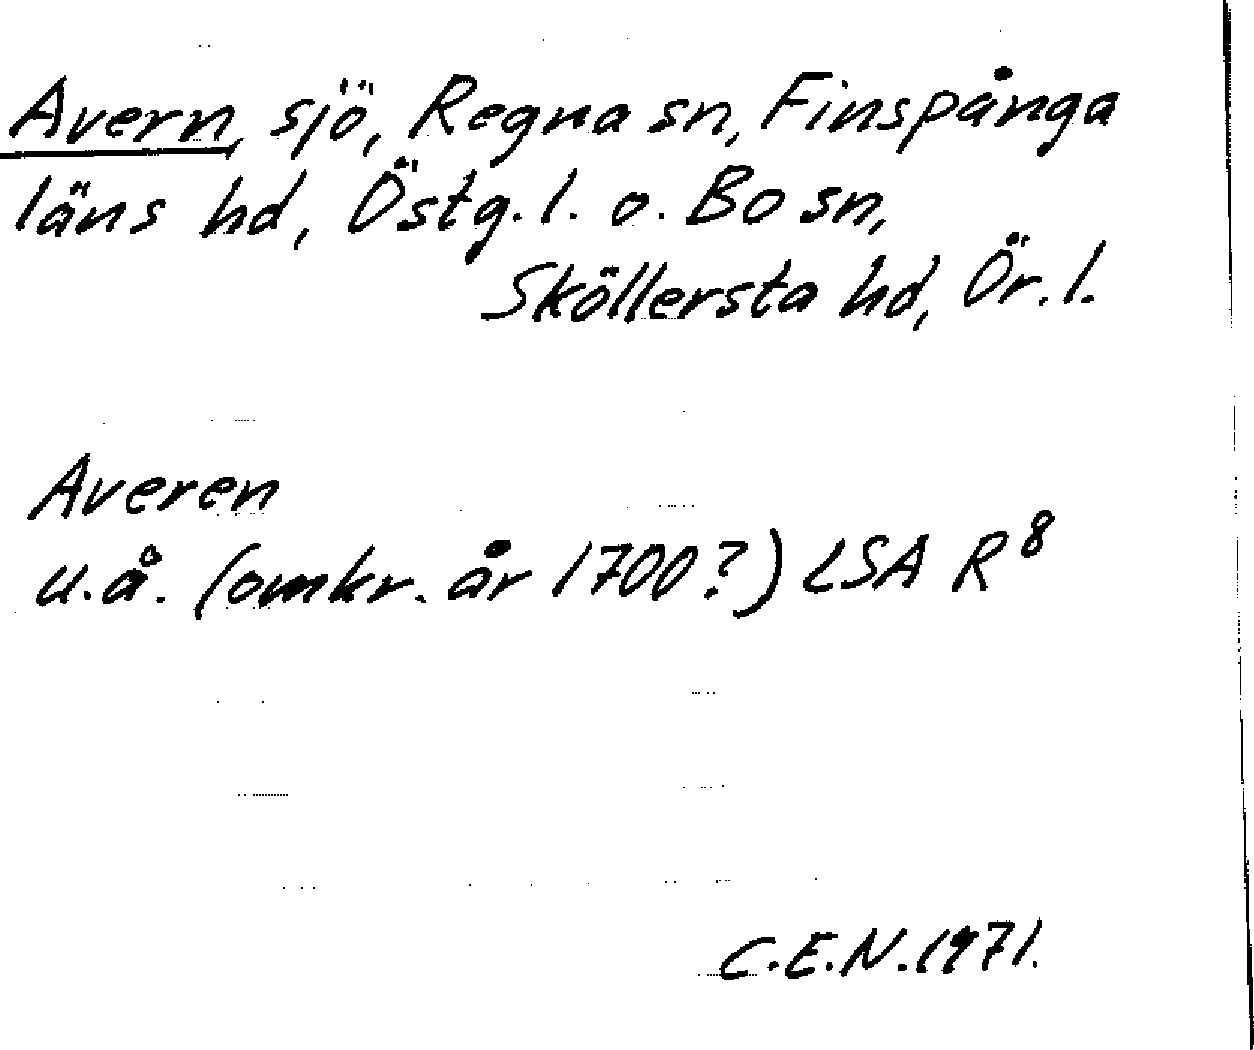 Avern, sjö, Regna sn, Finspånga
läns hd, Östg. l. o. Bo sn,
Sköllersta hd, Ör. l.
Averen
u.å. (omkr. år 1700?) LSA R⁸
C.E.N. 1971.